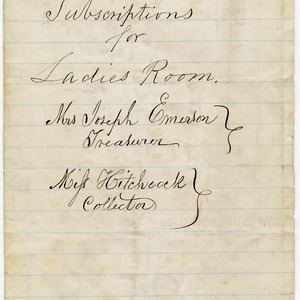 Subscriptions
for
Ladies Room.
Mrs Joseph Emerson
Treasurer
Miſs Hitchcock
Collector